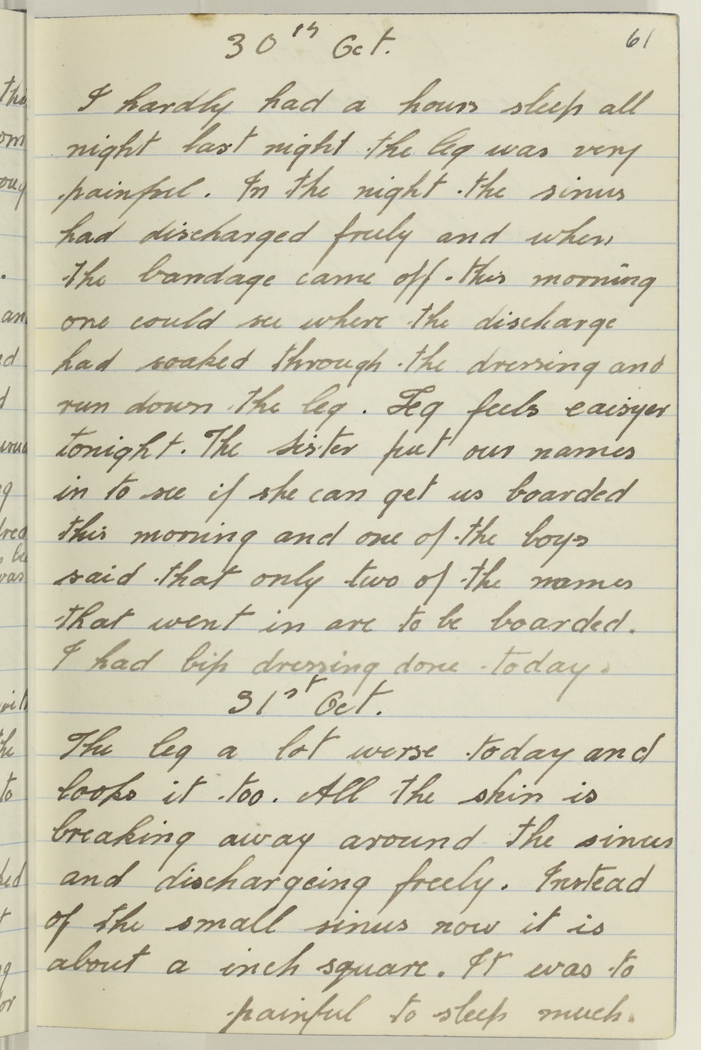 30th Oct.
61
I hardly had a hours sleep all
night last night the leg was very
painful. In the night the sinus
had discharged freely and when
the bandage came off this morning
one could see where the discharge
had soaked through the dressing and
run down the leg. Leg feels eaisyer
tonight. The sister put our names
in to see if she can get us boarded
this morning and one of the boys
said that only two of the names
that went in are to be boarded.
I had bip dressing done today.
31st Oct.
The leg a lot worse today and
looks it too. All the skin is
breaking away around the sinus
and dischargeing freely. Instead
of the small sinus now it is
about a inch square. It was to
painful to sleep much.